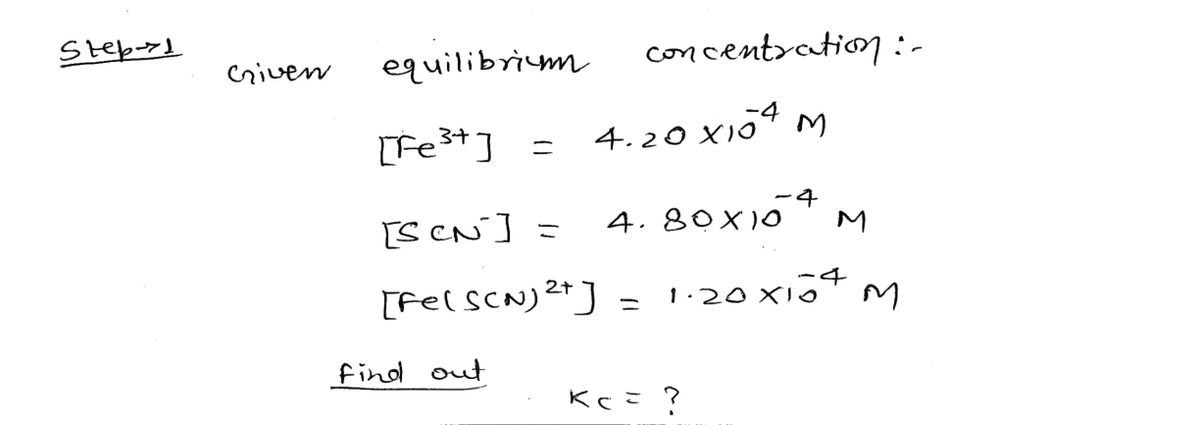 Step→1
Given equilibrium concentration :-
[Fe³⁺] = 4.20 ×10⁻⁴ M
[SCN⁻] = 4.80×10⁻⁴ M
[Fe(SCN)²⁺] = 1.20 ×10⁻⁴ M
find out
Kc = ?